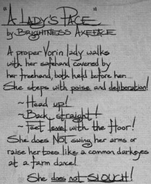 "A LADY'S PACE"
by BRIGHTNESS AXEFLE
A proper Vorin lady walks
with her safehand covered by
her freehand, both held before her...
She steps with poise and deliberation!
~ Head up!
~ Back straight!
~ Feet level with the floor!
She does NOT swing her arms or
raise her toes like a common darkeyes
at a farm dance!
She does not SLOUCH!